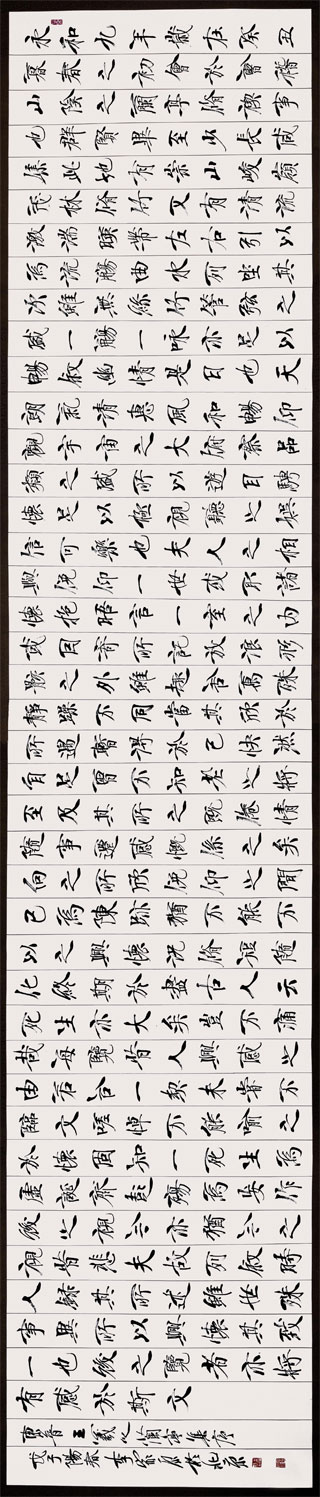 永和九年歲在癸丑
暮春之初會於會稽
山陰之蘭亭脩禊事
也群賢畢至少長咸
集此地有崇山峻嶺
茂林脩竹又有清流
激湍暎帶左右引以
為流觴曲水列坐其
次雖無絲竹管弦之
盛一觴一詠亦足以
暢敘幽情是日也天
朗氣清惠風和暢仰
觀宇宙之大俯察品
類之盛所以遊目騁
懷足以極視聽之娛
信可樂也夫人之相
與俯仰一世或取諸
懷抱悟言一室之內
或因寄所託放浪形
骸之外雖趣舍萬殊
靜躁不同當其欣於
所遇暫得於己快然
自足曾不知老之將
至及其所之既惓情
隨事遷感慨係之矣
向之所欣俛仰之間
已為陳跡猶不能不
以之興懷況脩短隨
化終期於盡古人云
死生亦大矣豈不痛
哉每覽昔人興感之
由若合一契未嘗不
臨文嗟悼不能喻之
於懷固知一死生為
虛誕齊彭殤為妄作
後之視今亦猶今之
視昔悲夫故列敘時
人錄其所述雖世殊
事異所以興懷其致
一也後之覽者亦將
有感於斯文
東晉王羲之蘭亭集序
戊子陽春